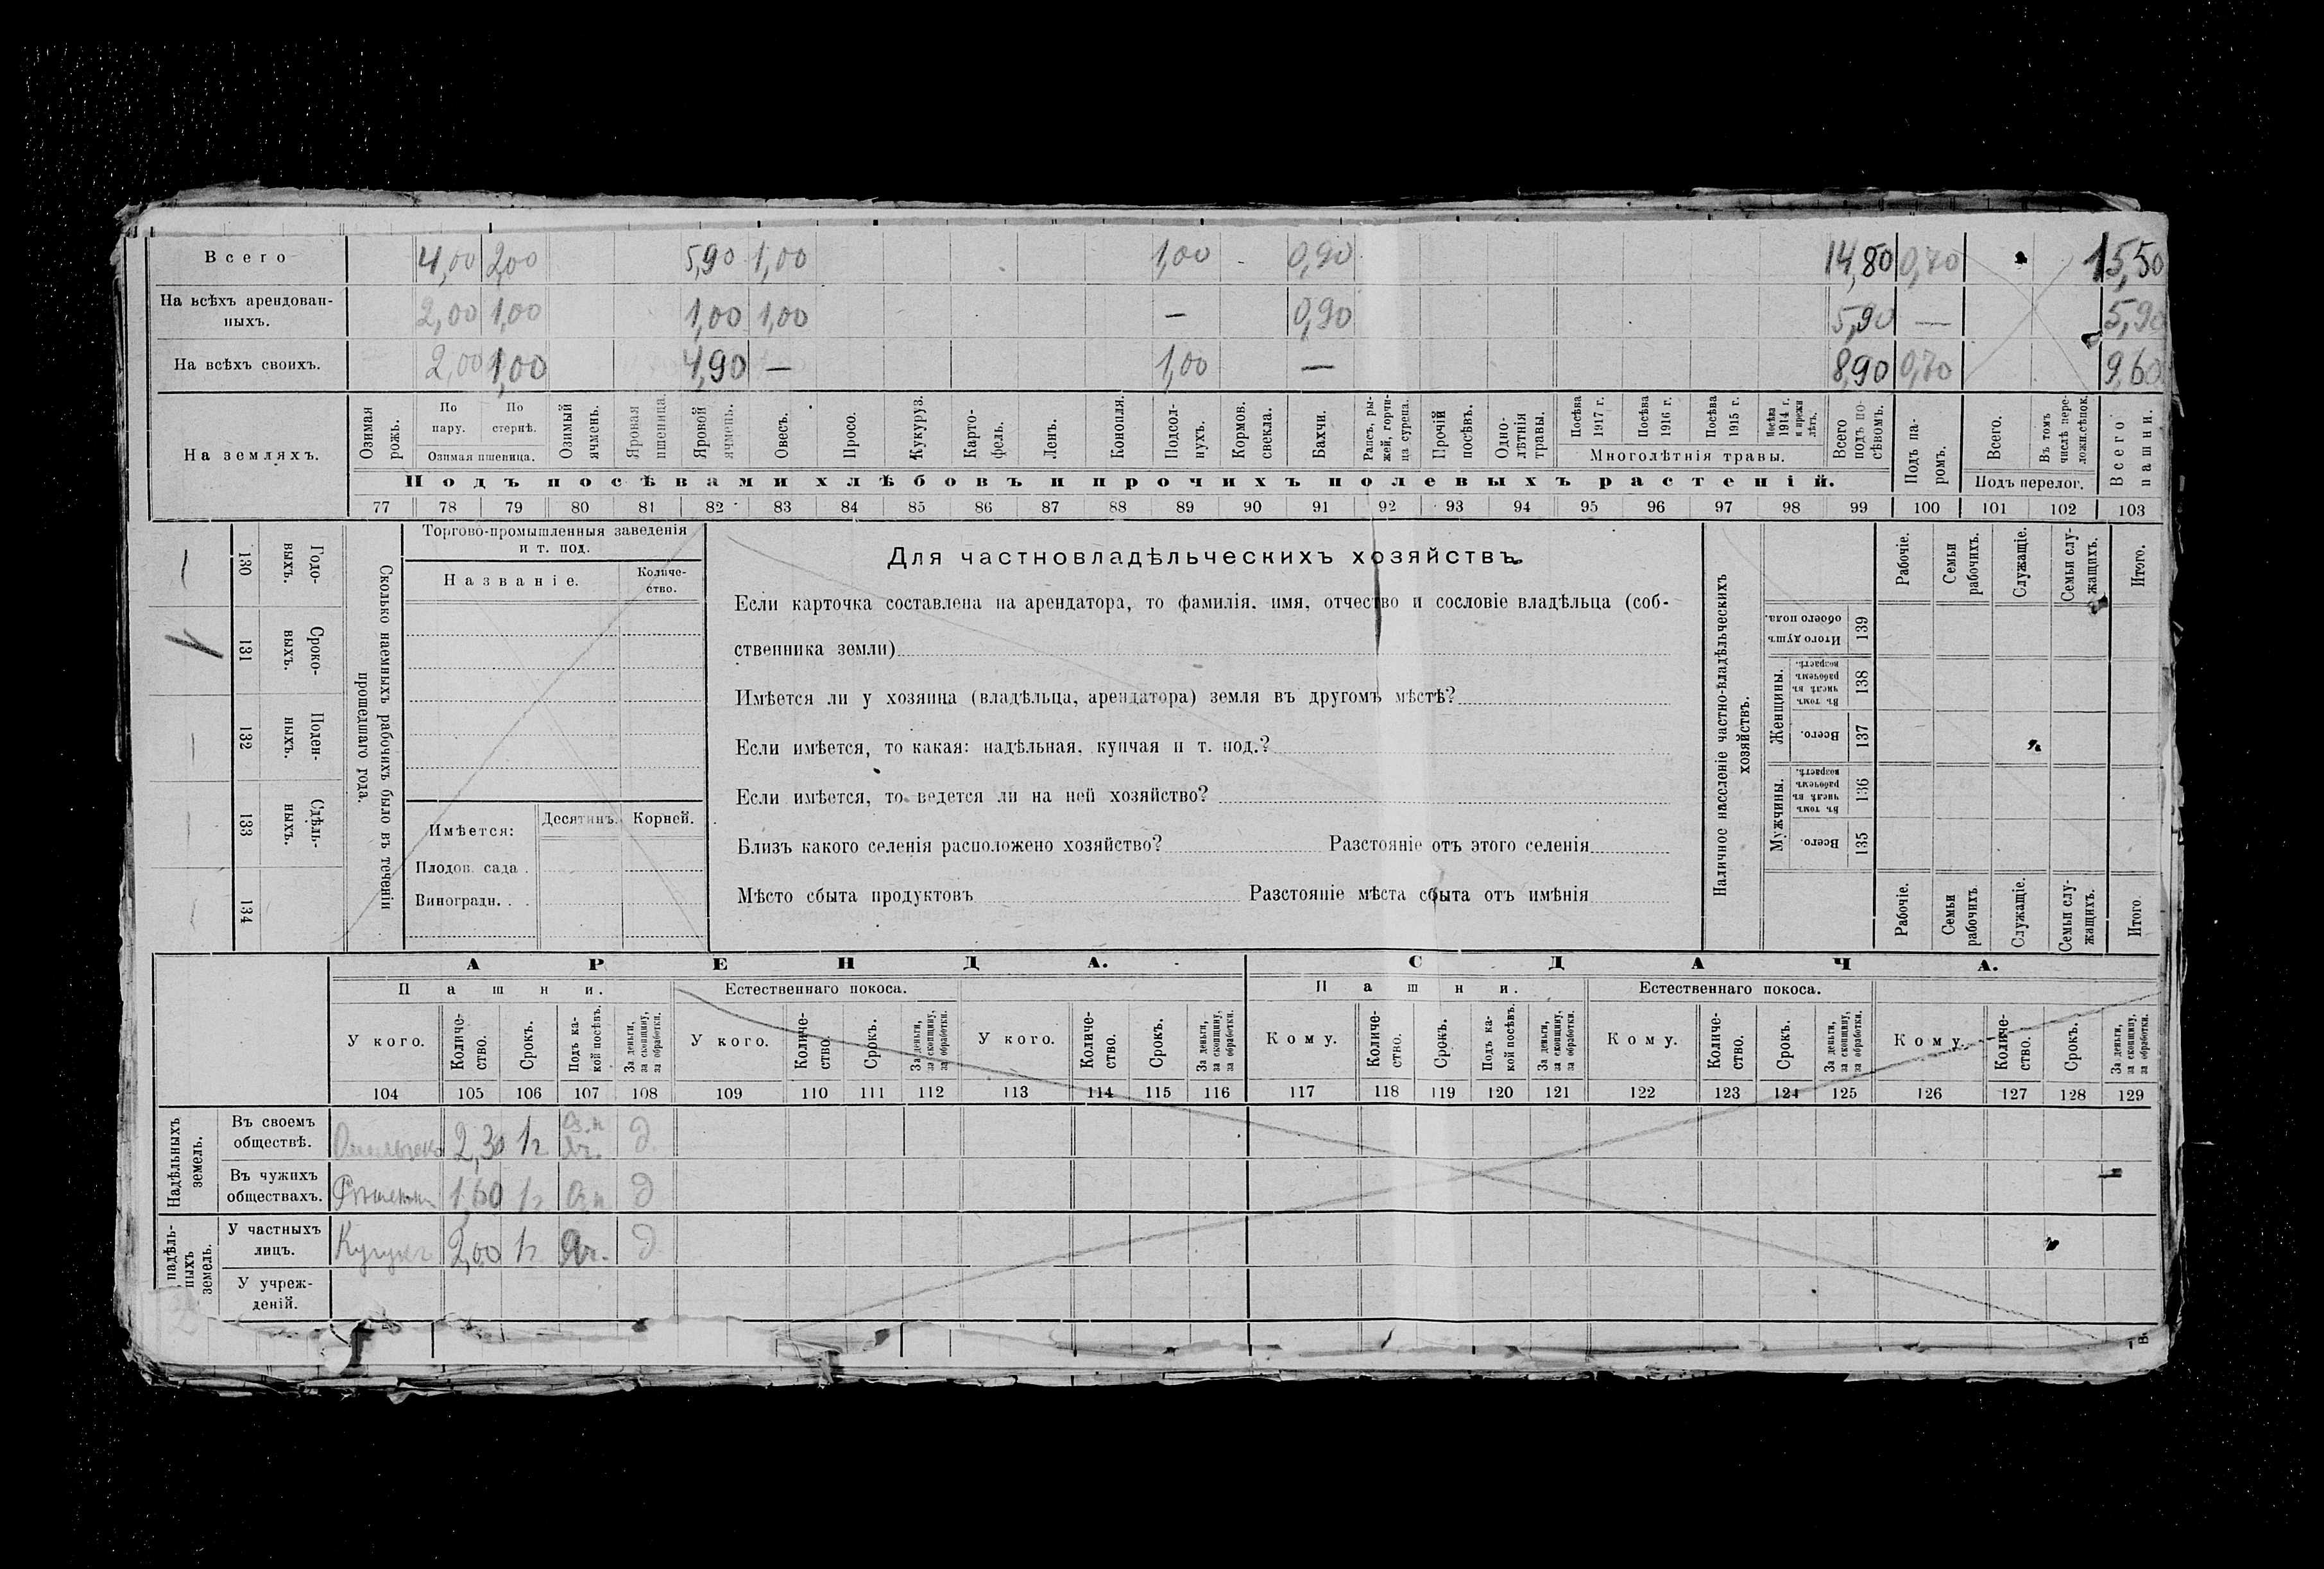 Всего 4,00 2,00 5,90 1,00 1,00 0,90 14,80 0,70 15,50
На всѣхъ арендован-
ныхъ. 2,00 1,00 1,00 1,00 — 0,90 5,90 — 5,90
На всѣхъ своихъ. 2,00 1,00 4,90 — 1,00 — 8,90 0,70 9,60
На земляхъ.
Озимая рожь.
По пару.
По стернѣ.
Озимая пшеница.
Озимый ячмень.
Яровая пшеница.
Яровой ячмень.
Овесъ.
Просо.
Кукуруз.
Карто-
фель.
Ленъ.
Конопля.
Подсол-
нухъ.
Кормов. свекла.
Бахчи.
Рапсъ, ры-
жей, горчи-
ца сурепа.
Прочій посѣвъ.
Одно-
лѣтнія травы.
Посѣва 1917 г.
Посѣва 1916 г.
Посѣва 1915 г.
Посѣва 1914 г. и прежн лѣтъ.
Многолѣтнія травы.
Всего подъ по-
сѣвомъ.
Подъ па-
ромъ.
Всего.
Въ томъ числѣ пере-
ложн.сѣнок.
Подъ перелог.
Всего пашни.
Подъ посѣвами хлѣбовъ и прочихъ полевыхъ растеній.
77 78 79 80 81 82 83 84 85 86 87 88 89 90 91 92 93 94 95 96 97 98 99 100 101 102 103
Сколько наемныхъ рабочихъ было въ теченіи
прошедшаго года.
Годо-
выхъ.
130 —
Сроко-
выхъ.
131
Поден-
ныхъ.
132 —
Сдѣль-
ныхъ.
133 —
134
Торгово-промышленныя заведенія
и т. под.
Названіе.
Количе-
ство.
Имѣется:
Десятинъ.
Корней.
Плодов. сада .
Виноградн. . .
Для частновладѣльческихъ хозяйствъ.
Если карточка составлена на арендатора, то фамилія, имя, отчество и сословіе владѣльца (соб-
ственника земли)
Имѣется ли у хозяина (владѣльца, арендатора) земля въ другомъ мѣстѣ?
Если имѣется, то какая: надѣльная, купчая и т. под.?
Если имѣется, то ведется ли на ней хозяйство?
Близъ какого селенія расположено хозяйство? Разстояніе отъ этого селенія
Мѣсто сбыта продуктовъ Разстояніе мѣста сбыта отъ имѣнія
Наличное населеніе частно-владѣльческихъ
хозяйствъ.
Рабочіе.
Семьи рабочихъ.
Служащіе.
Семьи слу-
жащихъ.
Итого.
Итого душъ обоего пола.
139
Женщины.
Въ томъ числѣ въ рабочемъ возрастѣ.
138
Всего.
137
Мужчины.
Въ томъ числѣ въ рабочемъ возрастѣ.
136
Всего.
135
Рабочіе.
Семьи рабочихъ
Служащіе.
Семьи слу-
жащихъ.
Итого
АРЕНДА.
СДАЧА.
Пашни.
Естественнаго покоса.
Пашни.
Естественнаго покоса.
У кого.
Количе-
ство.
Срокъ.
Подъ ка-
кой посѣвъ.
За деньги, за скопщину, за обработки.
У кого.
Количе-
ство.
Срокъ.
За деньги, за скопщину, за обработки.
У кого.
Количе-
ство.
Срокъ.
За деньги, за скопщину, за обработки.
Кому.
Количе-
ство.
Срокъ.
Подъ ка-
кой посѣвъ.
За деньги, за скопщину, за обработки.
Кому.
Количе-
ство.
Срокъ.
За деньги, за скопщину, за обработки.
Кому.
Количе-
ство.
Срокъ.
За деньги, за скопщину, за обработки.
104 105 106 107 108 109 110 111 112 113 114 115 116 117 118 119 120 121 122 123 124 125 126 127 128 129
Надѣльныхъ
земель.
Въ своемъ
обществѣ. 2,30 1г. Оз.п Яч. д
Въ чужихъ
обществахъ. 1,60 1г. Оз п д
надѣль-
ныхъ
земель.
У частныхъ
лицъ. 2,00 1г. Яч. д
У учреж-
деній.